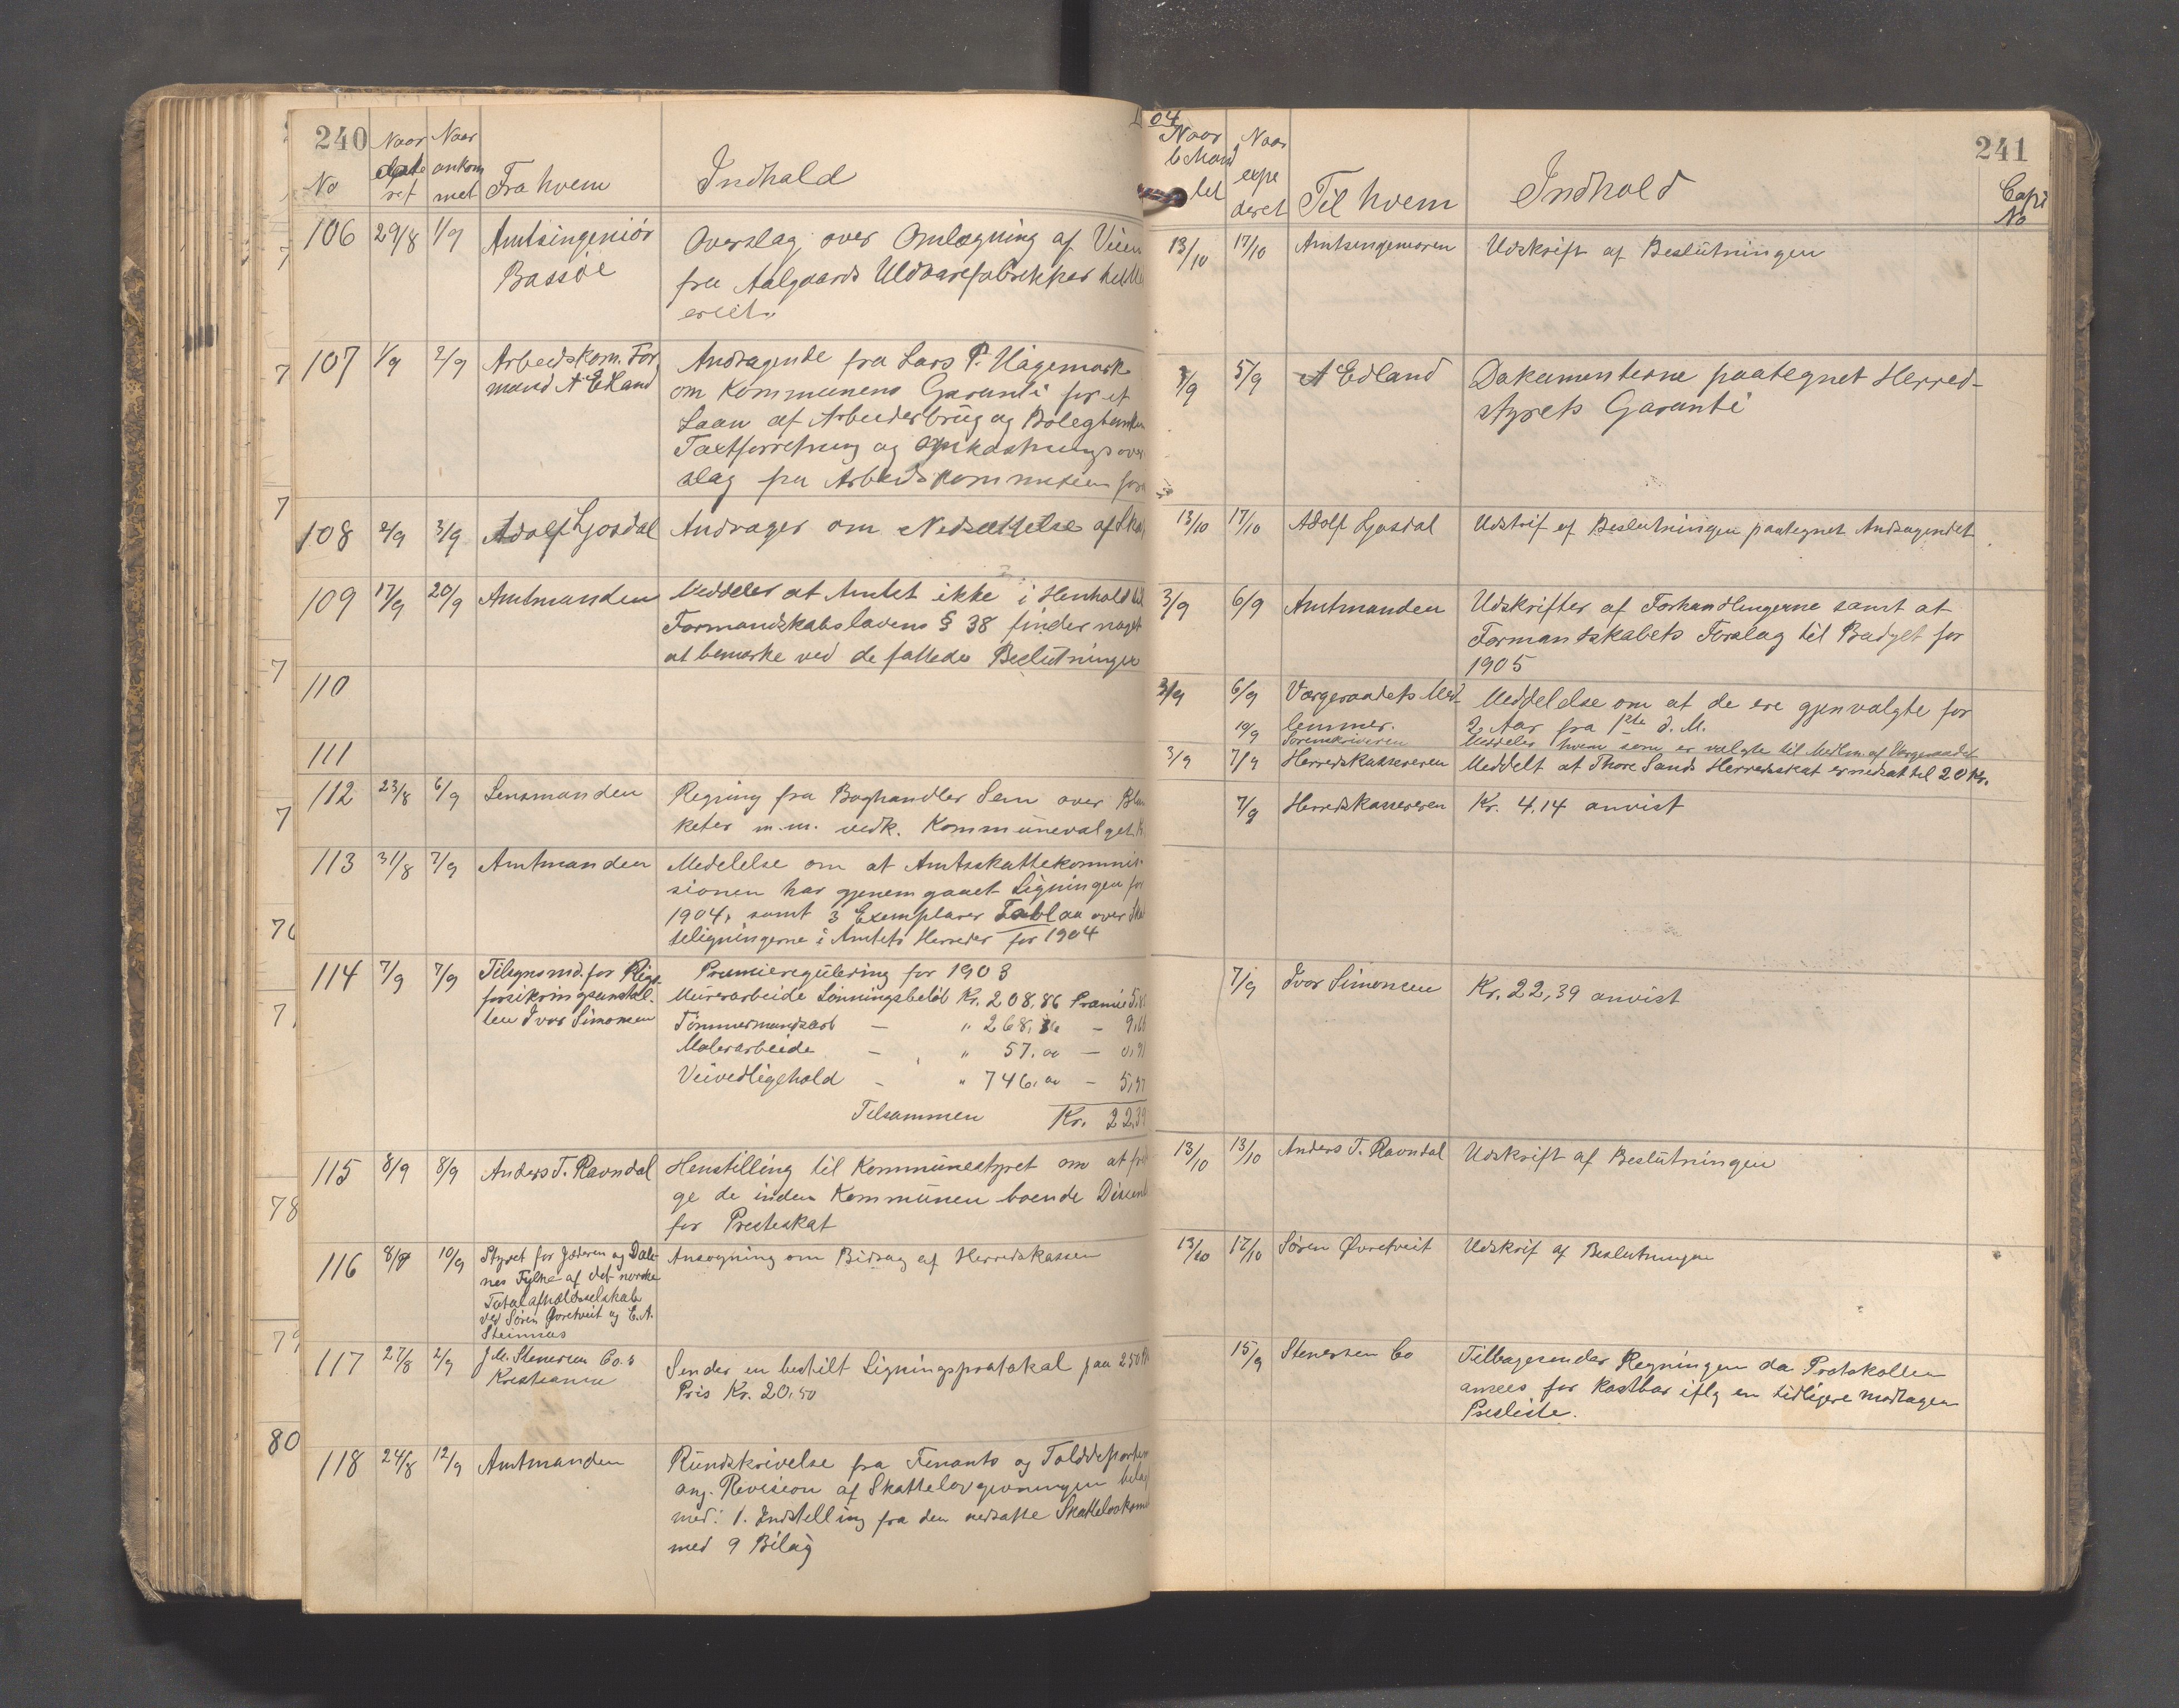 240
No
Naar
date
ret
Naar
ankom
met
Fra hvem
Indhold
106 29/8 1/9 Amtsingeniör
Bassöe
Overslag over Omlægning af Veien
fra Aalgaards Uldvarefabrikker til
eriet.
107 1/9 2/9 Arbeidskom. For
mand A Edland
Andragende fra Lars P. Hagemark
om Kommunens Garanti for et
Laan af Arbeiderbrug og Boligbanken
Taxtforretning og Omkostningsover
slag fra Arbeidskommiteen
108 2/9 3/9 Adolf Ljosdal
Andrager om Nedsættelse af Ska
109 17/9 20/9 Amtmanden
Meddeler at Amtet ikke i Henhold til
Formandskabslovens § 38 finder noget
at bemærke ved de fattede Beslutninger
110
111
112 23/8 6/9 Lensmanden
Regning fra Boghandler Sem over Blan
keter m.m. vedk. Kommunevalget. K
113 31/8 7/9 Amtmanden
Medelelse om at Amtsskattekommis-
sionen har gjenemgaaet Ligningen for
1904, samt 3 Exemplarer Tablaa over Ska
teligningerne i Amtets Herreder for 1904
114 7/9 7/9 Tilsynsmd. for Rigs-
forsikringsanstal-
ten Ivar Simonsen
Premieregulering for 1903
Murerarbeide Lønningsbeløb Kr. 208,86 Præmie 5,8
Tømmermandsarb — " 268,36 — 9,
Malerarbeide — " 57,00 — 0,91
Veivedligehold — " 746,00 — 5,97
Tilsammen Kr. 22,39
115 8/9 8/9 Anders T. Ravndal
Henstilling til Kommunestyret om at fri
ge de inden Kommunen boende Dissent
for Presteskat
116 8/9 10/9 Styret for Jæderen og Dale-
nes Fylke af det norske
Totalafholdsselskab
ved Sören Øvretveit og E. A.
Steinnæs
Ansøgning om Bidrag af Herredskassen
117 27/8 2/9 J. M. Stenersen Co.s
Kristiania
Sender en bestilt Ligningsprotokal paa 250
Pris Kr. 20.50
118 24/8 12/9 Amtmanden
Rundskrivelse fra Finants og Tolddeparte
ang. Revision af Skattelovgivningen bilag
med: 1. Indstelling fra den nedsatte Skattelovkom
med 9 Bilag
04
Naar
behand
let
Naar
expe
deret
Til hvem
Indhold
241
Copi
No
13/10 17/10 Amtsingeniøren Udskrift af Beslutningen
5/9 A Edland Dokumenterne paategnet Herred-
styrets Garanti
13/10 17/10 Adolf Ljosdal Udskrif af Beslutningen paategnet Andragendet
3/9 6/9 Amtmanden Udskrifter af Forhandlingerne samt at
Formandskabets Forslag til Budget for
1905
3/9 6/9 Værgeraadets Med-
lemmer.
Meddelelse om at de ere gjenvalgte for
2 Aar fra 1ste d. M.
19/9 Sorenskriveren Meddeler hvem som er valgte til Medlm. af Værgeraadet
3/9 7/9 Herredskassereren Meddelt at Thore Sands Herredsskat er nedsat til 20 Kr.
7/9 Herredskassereren Kr. 4.14 anvist
7/9 Ivar Simonsen Kr. 22,39 anvist
13/10 13/10 Anders T. Ravndal Udskrift af Beslutningen
13/10 17/10 Søren Øvretveit Udskrif af Beslutningen
15/9 Stenersen Co Tilbagesender Regningen da Protokollen
ansees for kostbar iflg en tidligere modtagen
Prisliste.